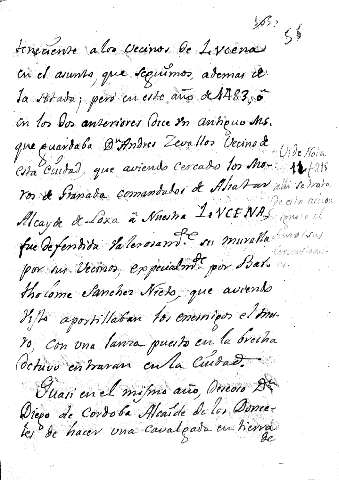 56
teneciente a los Vecinos de Lucena
en el asunto, que seguimos, ademas de
la citada; pero en este año de 1483, ô
en los dos anteriores dice un antiguo Ms.
que guardaba Dn. Andres Zevallos Vecino de
esta Ciudad, que aviendo cercado los Mo-
ros de Granada comandados de Aliatar
Alcayde de Loxa â Nuestra LVCENA,
fue defendida valerosamte. su muralla
por sus Vecinos, especialmte. por Bar-
tholome Sanchez Nieto, que aviendo
visto aportillaban los enemigos el mu-
ro, con una lanza puesto en la brecha
detuvo entraran en la Ciudad.
Quasi en el mismo año, deseoso Dn.
Diego de Cordoba Alcaide de los Donce-
les de hacer una cavalgada en tierra
de
Vide Nota
se trata
de esta accion